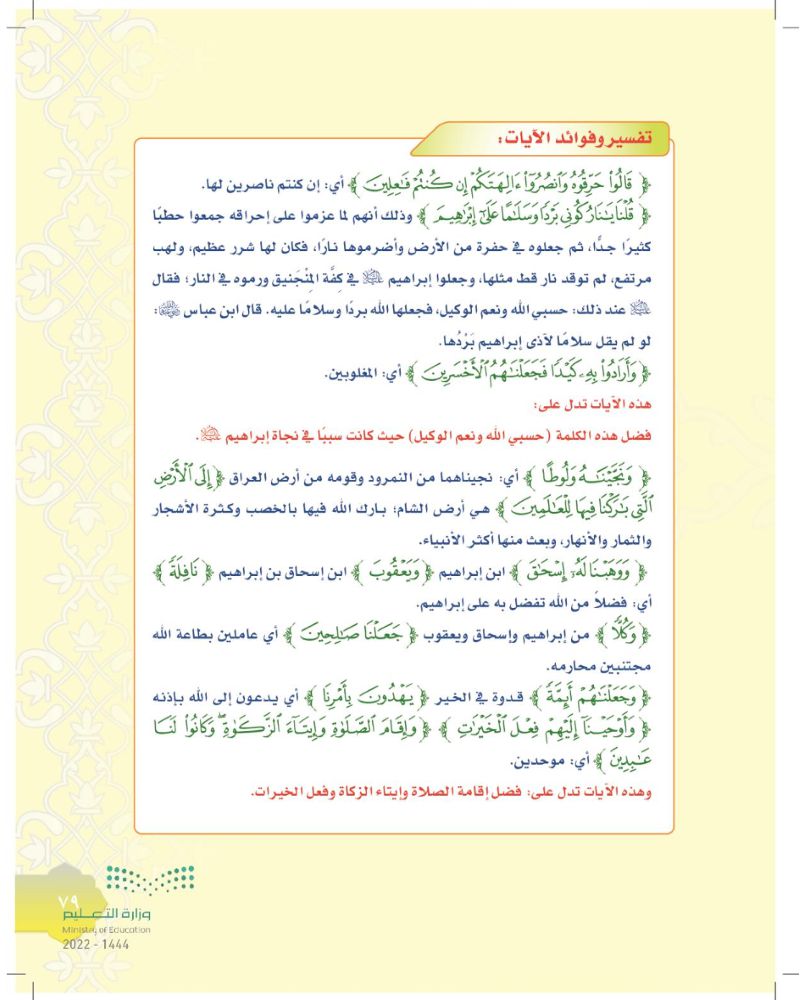 تفسير وفوائد الآيات:
﴿ قَالُوا۟ حَرِّقُوهُ وَٱنصُرُوٓا۟ ءَالِهَتَكُمْ إِن كُنتُمْ فَـٰعِلِينَ ﴾ أي: إن كنتم ناصرين لها.
﴿ قُلْنَا يَـٰنَارُ كُونِى بَرْدًا وَسَلَـٰمًا عَلَىٰٓ إِبْرَٰهِيمَ ﴾ وذلك أنهم لما عزموا على إحراقه جمعوا حطبًا
كثيرًا جدًّا، ثم جعلوه في حفرة من الأرض وأضرموها نارًا، فكان لها شرر عظيم، ولهب
مرتفع، لم توقد نار قط مثلها، وجعلوا إبراهيم عليه السلام في كِفَّة المِنْجَنيق ورموه في النار؛ فقال
عليه السلام عند ذلك: حسبي الله ونعم الوكيل، فجعلها الله بردًا وسلامًا عليه. قال ابن عباس رضي الله عنهما:
لو لم يقل سلامًا لآذى إبراهيم بَرْدُها.
﴿ وَأَرَادُوا۟ بِهِۦ كَيْدًا فَجَعَلْنَـٰهُمُ ٱلْأَخْسَرِينَ ﴾ أي: المغلوبين.
هذه الآيات تدل على:
فضل هذه الكلمة (حسبي الله ونعم الوكيل) حيث كانت سببًا في نجاة إبراهيم عليه السلام.
﴿ وَنَجَّيْنَـٰهُ وَلُوطًا ﴾ أي: نجيناهما من النمرود وقومه من أرض العراق ﴿ إِلَى ٱلْأَرْضِ
ٱلَّتِى بَـٰرَكْنَا فِيهَا لِلْعَـٰلَمِينَ ﴾ هي أرض الشام؛ بارك الله فيها بالخصب وكثرة الأشجار
والثمار والأنهار، وبعث منها أكثر الأنبياء.
﴿ وَوَهَبْنَا لَهُۥٓ إِسْحَـٰقَ ﴾ ابن إبراهيم ﴿ وَيَعْقُوبَ ﴾ ابن إسحاق بن إبراهيم ﴿ نَافِلَةً ﴾
أي: فضلاً من الله تفضل به على إبراهيم.
﴿ وَكُلًّا ﴾ من إبراهيم وإسحاق ويعقوب ﴿ جَعَلْنَا صَـٰلِحِينَ ﴾ أي عاملين بطاعة الله
مجتنبين محارمه.
﴿ وَجَعَلْنَـٰهُمْ أَئِمَّةً ﴾ قدوة في الخير ﴿ يَهْدُونَ بِأَمْرِنَا ﴾ أي يدعون إلى الله بإذنه
﴿ وَأَوْحَيْنَآ إِلَيْهِمْ فِعْلَ ٱلْخَيْرَٰتِ ﴾ ﴿ وَإِقَامَ ٱلصَّلَوٰةِ وَإِيتَآءَ ٱلزَّكَوٰةِ ۖ وَكَانُوا۟ لَنَا
عَـٰبِدِينَ ﴾ أي: موحدين.
وهذه الآيات تدل على: فضل إقامة الصلاة وإيتاء الزكاة وفعل الخيرات.
٧٩
وزارة التعـليم
Ministry of Education
2022 - 1444